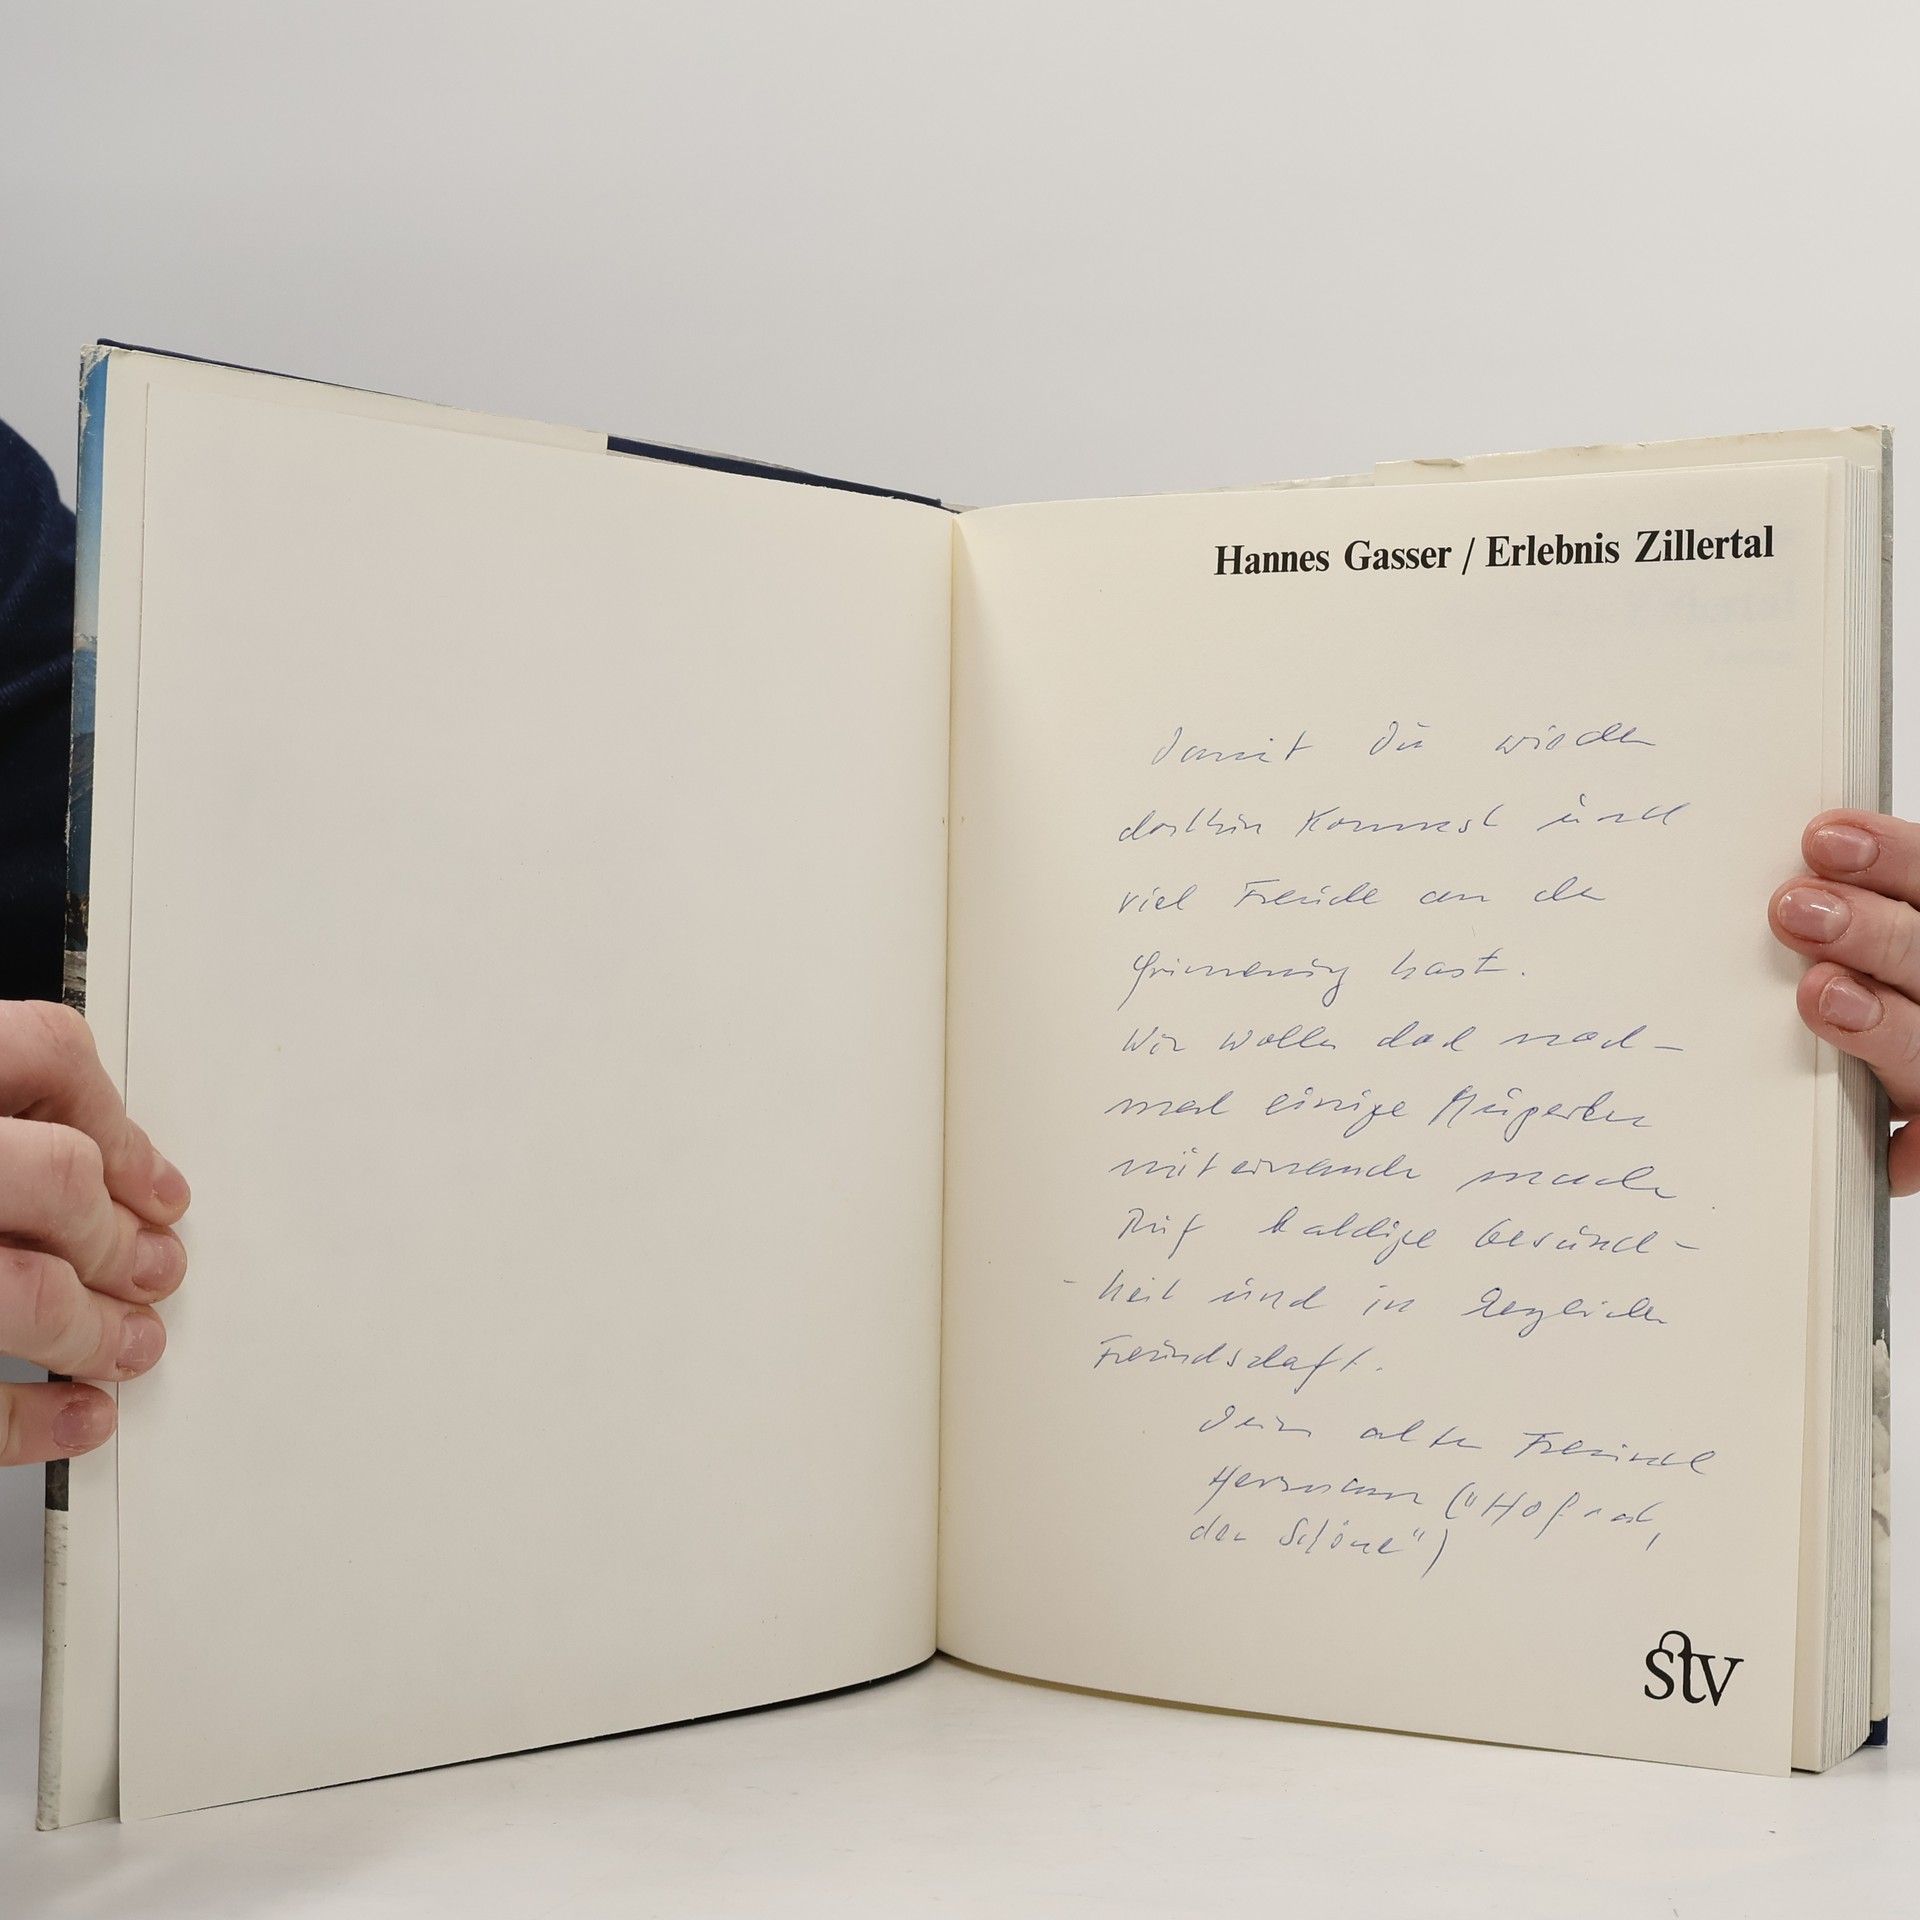 Hannes Gasser / Erlebnis Zillertal
Damit Du wieder
dorthin kommst und
viel Freude an der
Erinnerung hast.
Wir wollen doch noch-
mal einige
miteinander machen
Auf baldige Gesund-
heit und in herzlicher
Freundschaft.
Dein alter Freund
Hermann ("Hofrat,
der Schöne")
stv